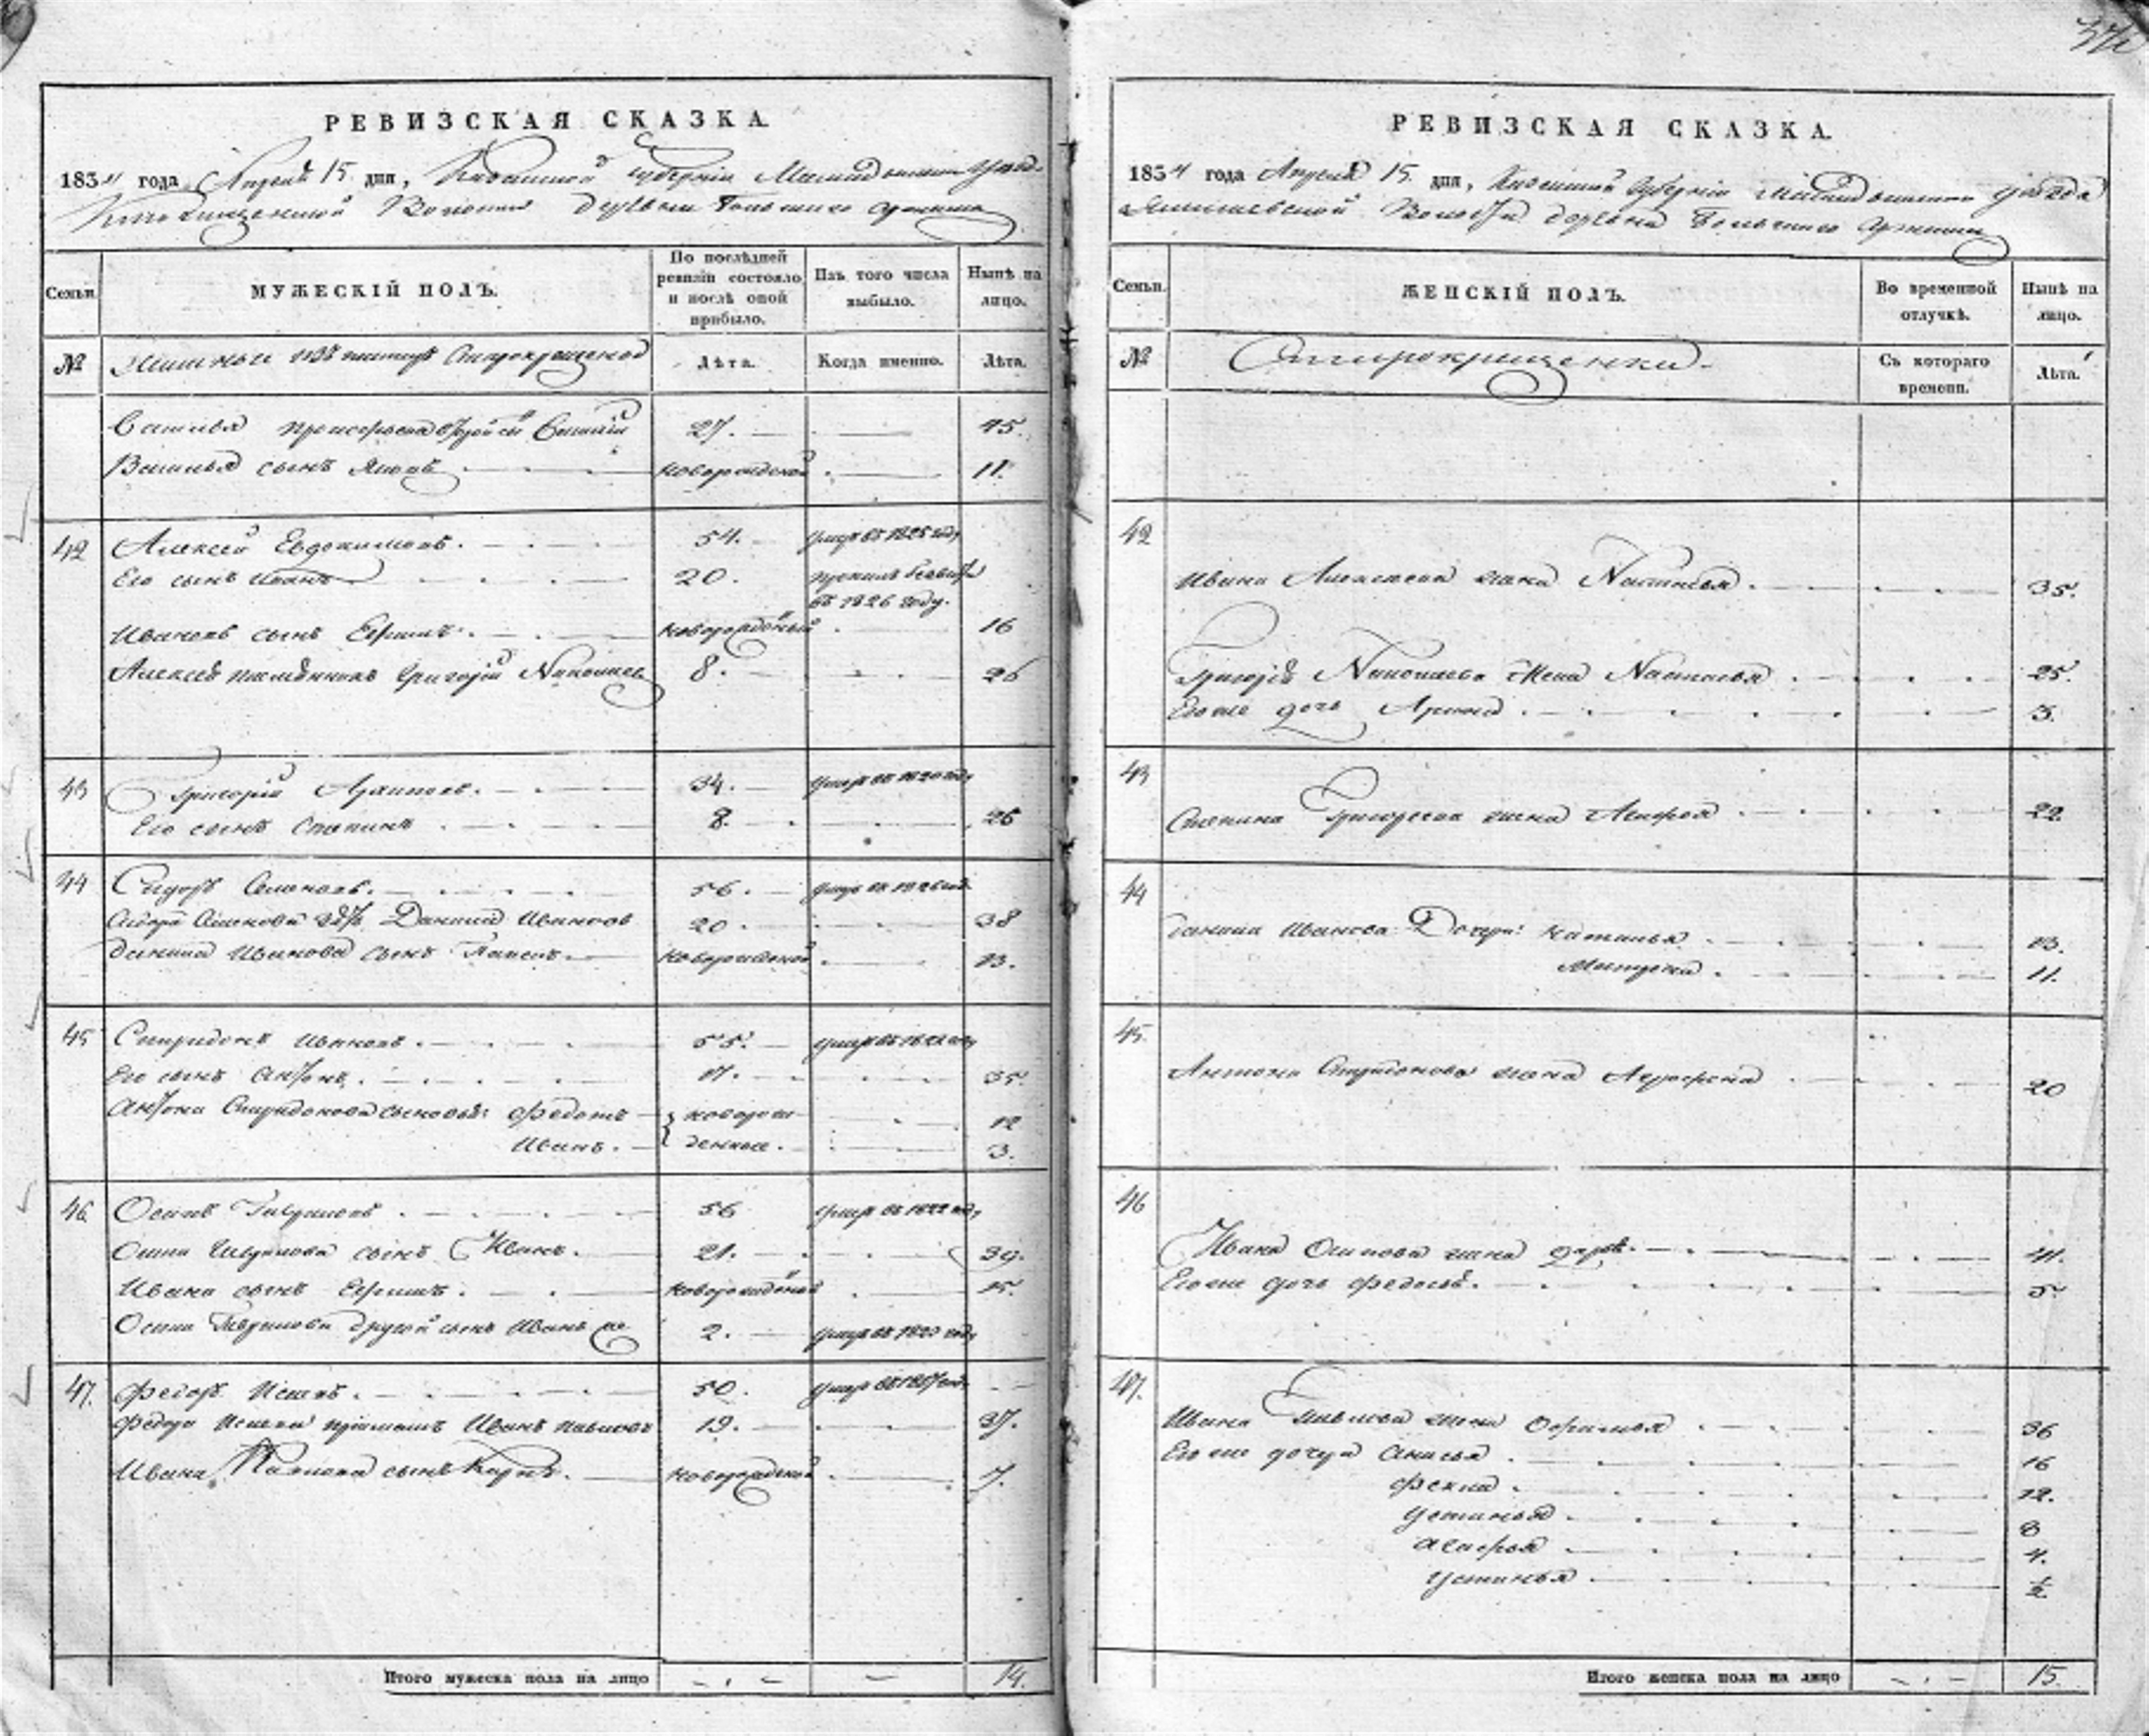 РЕВИЗСКАЯ СКАЗКА.
1834 года Апреля 15 дня, Казанской губернии Мамадышского уезда
Волости деревни Большого
Семьи.
МУЖЕСКІЙ ПОЛЪ.
По послѣдней ревизіи состояло и послѣ оной прибыло.
Изъ того числа выбыло.
Нынѣ на лицо.
№
изъ татаръ Старокрещеной
Лѣта.
Когда именно.
Лѣта.
Василья сы Василій 27. 45.
Василья сынъ Яковъ новорожденой 11.
42 Алексей Евдокимовъ. 54. умеръ въ 1826 году
Его сынъ Иванъ 20.
въ 1826 году.
Ивановъ сынъ Ефимъ. новорожденый 16
Алексея племянникъ Григорій Николаев 8. 26
43 Григорій Архиповъ. 34. умеръ въ году
Его сынъ Степанъ 8. 26
44 Сидоръ Семеновъ. 56. умеръ въ 1826 год
Сидора Семенова зять Данила Ивановъ 20 38
Данила Иванова сынъ новорожденой 13.
45 Спиридонъ Ивановъ. 55. умеръ въ году
Его сынъ Антонъ. 17. 35.
Антона Спиридонова сыновья: Федотъ новорож- 12
Иванъ. денные. 3.
46 Осипъ Гавриловъ 56 умеръ въ 1822 году
Осипа Гаврилова сынъ Иванъ. 21. 39.
Ивана сынъ Ефимъ. новорожденой 15.
Осипа Гаврилова другой сынъ Иванъ же 2. умеръ въ году
47. Федоръ Исаевъ. 50. умеръ въ году
Федора Исаева пріемышъ Иванъ Павловъ 19. 37.
Ивана Павлова сынъ Карпъ. новорожденой 7.
Итого мужеска пола на лицо 14.
РЕВИЗСКАЯ СКАЗКА.
1834 года Апреля 15. дня, Казанской губерніи Мамадышского уезда
Волости деревни Большого
Семьи.
ЖЕНСКІЙ ПОЛЪ.
Во временной отлучкѣ.
Нынѣ на лицо.
№
Старокрещенки.
Съ котораго времени.
Лѣта.
42
Ивана Алексеева жена Наталья. 35.
Григорія Николаева жена Наталья 25.
Его же дочь Арина. 3.
43
Степана Григорьева жена 22.
44
Данила Иванова Дочери: Наталья 13.
Матрена. 11.
45.
Антона Спиридонова жена 20
46
Ивана Осипова жена 41.
Его же дочь Федосья. 5.
47.
Ивана Павлова жена 36
Его же дочери Анисья 16
Фекла. 12.
Устинья. 8
Агафья 4.
Устинья. ½
Итого женска пола на лицо 15.